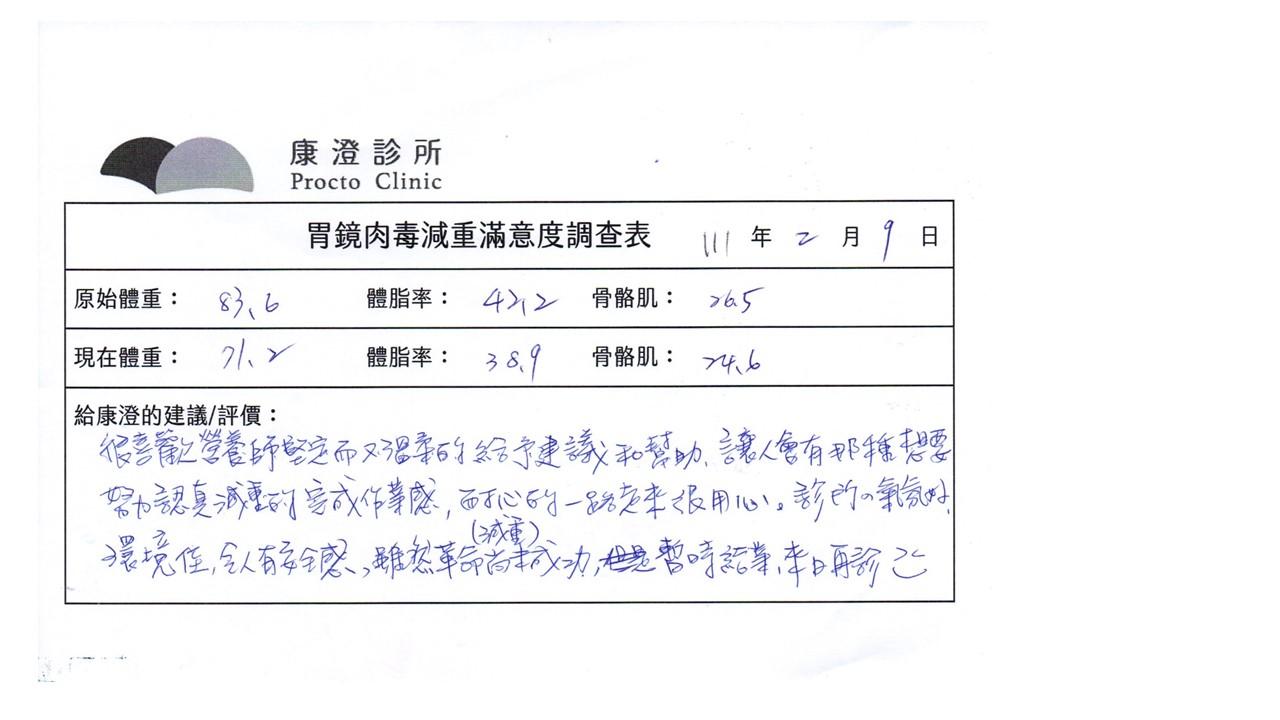 康澄診所
Procto Clinic
胃鏡肉毒減重滿意度調查表 111 年 2 月 9 日
原始體重： 83.6 體脂率： 42.2 骨骼肌： 26.5
現在體重： 71.2 體脂率： 38.9 骨骼肌： 24.6
給康澄的建議/評價：
很喜歡營養師堅定而又溫柔的給予建議和幫助、讓人會有那種想要
努力認真減重的完成作業感，耐心的一路走來很用心。診所の氣氛好、
(減重)
環境佳，令人有安全感、，雖然革命尚未成功，暫時結業，來日再診